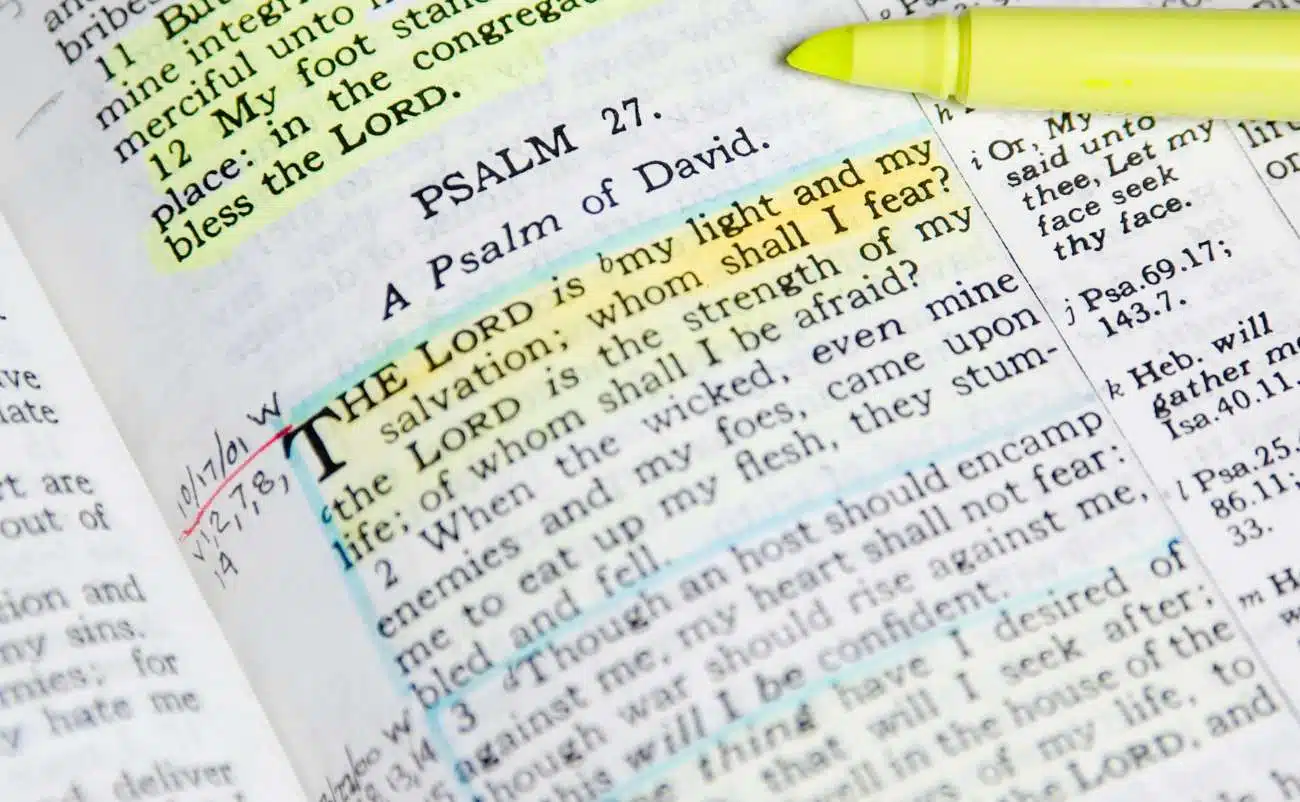 bribes
11 But
mine integri
merciful unto
12 My foot stand
place: in the congrega
bless the LORD.
PSALM 27.
A Psalm of David.
THE LORD is bmy light and my
salvation; whom shall I fear?
cthe LORD is the strength of my
life; of whom shall I be afraid?
2 When the wicked, even mine
enemies and my foes, came upon
me to eat up my flesh, they stum-
bled and fell.
3 dThough an host should encamp
against me, my heart shall not fear:
though war should rise against me,
this will I be confident.
thing have I desired of
that will I seek after;
in the house of the
of my life, to
the LORD, and
10/17/01 W
v1,2,7,8,
14
W
13,14
h
i Or, My
said unto
thee, Let my
face seek
thy face.
j Psa.69.17;
143.7.
k Heb. will
gather me
Isa.40.11.
l Psa.25.
86.11;
33.
m H
ve
late
rt are
out of
tion and
ny sins.
mies; for
y hate me
deliver